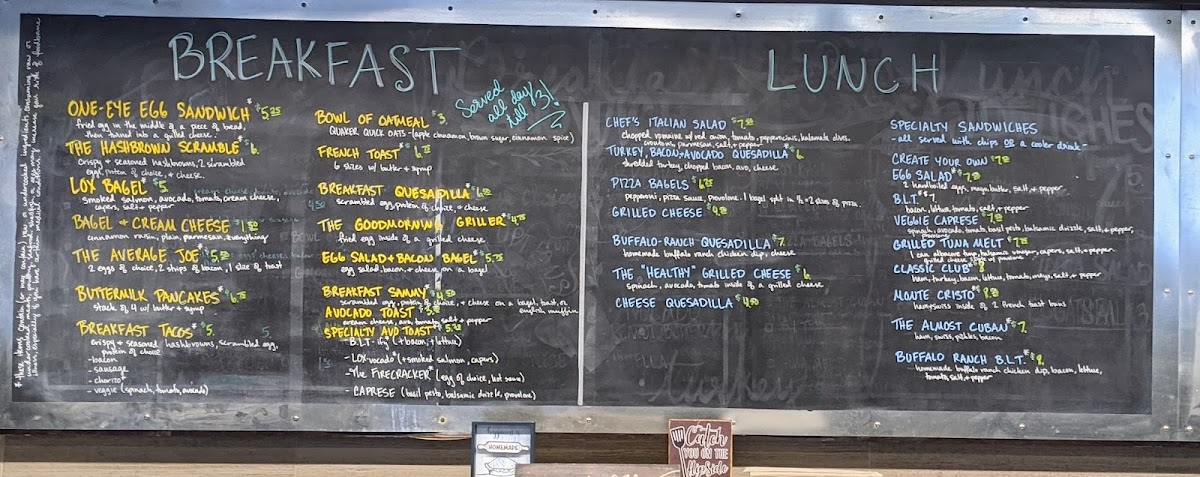 BREAKFAST
Served
all day
till 3!
ONE-EYE EGG SANDWICH* $5.25
fried egg in the middle of a piece of bread,
then turned into a grilled cheese.
THE HASHBROWN SCRAMBLE* $6.
crispy + seasoned hashbrowns, 2 scrambled
eggs, protein of choice, + cheese.
LOX BAGEL* $5.
smoked salmon, avocado, tomato, cream cheese,
capers, salt + pepper
BAGEL + CREAM CHEESE
cinnamon raisin, plain, parmesan, everything
THE AVERAGE JOE*
2 eggs of choice, 2 strips of bacon, 1 slice of toast
BUTTERMILK PANCAKES* $6.75
stack of 4 w/ butter + syrup
BREAKFAST TACOS* $5.
crispy + seasoned hashbrowns, scrambled egg,
protein of choice
- bacon
- sausage
- chorizo
- veggie (spinach, tomato, avocado)
BOWL OF OATMEAL $3.
QUAKER QUICK OATS - (apple cinnamon, brown sugar, cinnamon spice)
FRENCH TOAST*
6 slices w/ butter + syrup
BREAKFAST QUESADILLA
scrambled egg, protein of choice, + cheese
THE GOODMORNING GRILLER $4.75
fried egg inside of a grilled cheese
EGG SALAD + BACON BAGEL* $5.75
egg salad, bacon, + cheese on a bagel
BREAKFAST SAMMY* $4.50
scrambled egg, protein of choice, + cheese on a bagel, toast, or
english muffin
AVOCADO TOAST*
cream cheese, avo, tomato, salt + pepper
SPECIALTY AVO TOAST*
- B.L.T.-ify (+ bacon, + lettuce)
- LOX-vocado* (+ smoked salmon, capers)
- The FIRECRACKER* (egg of choice, hot sauce)
- CAPRESE (basil pesto, balsamic drizzle, provolone)
LUNCH
CHEF'S ITALIAN SALAD
chopped romaine w/ red onion, tomato, pepperoncinis, kalamata olives,
croutons, parmesan, salt + pepper
TURKEY, BACON + AVOCADO QUESADILLA $6.
shredded turkey, chopped bacon, avo, cheese
PIZZA BAGELS
pepperoni, pizza sauce, provolone. 1 bagel split in ½ = 2 slices of pizza.
GRILLED CHEESE
BUFFALO-RANCH QUESADILLA $7.
homemade buffalo ranch chicken dip, cheese
THE "HEALTHY" GRILLED CHEESE $6.
spinach, avocado, tomato inside of a grilled cheese
CHEESE QUESADILLA $4.50
SPECIALTY SANDWICHES
- all served with chips OR a cooler drink -
CREATE YOUR OWN
EGG SALAD*
2 hardboiled eggs, mayo, butter, salt, + pepper
B.L.T.* $7.
bacon, lettuce, tomato, salt, + pepper
VEGGIE CAPRESE
spinach, avocado, tomato, basil pesto, balsamic drizzle, salt, + pepper,
provolone
GRILLED TUNA MELT
1 can albacore tuna, balsamic vinegar, capers, salt, + pepper
CLASSIC CLUB* $8
ham, turkey, bacon, lettuce, tomato, mayo, salt, + pepper
MONTE CRISTO*
ham, swiss inside of 2 french toast
THE ALMOST CUBAN* $7.
ham, swiss, pickles, bacon
BUFFALO RANCH B.L.T.*
- homemade buffalo ranch chicken dip, bacon, lettuce,
tomato, salt, + pepper
HOMEMADE
Catch
YOU ON THE
flipside